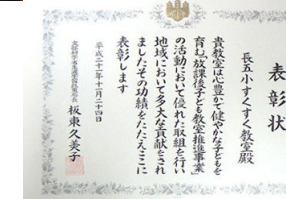 表彰状
長五小すくすく教室殿
貴教室は心豊かで健やかな子どもを
育む「放課後子ども教室推進事業」
の活動において優れた取組を行い
地域において多大な貢献をされ
ましたその功績をたたえここに
表彰します
平成二十二年十一月二十四日
板東久美子